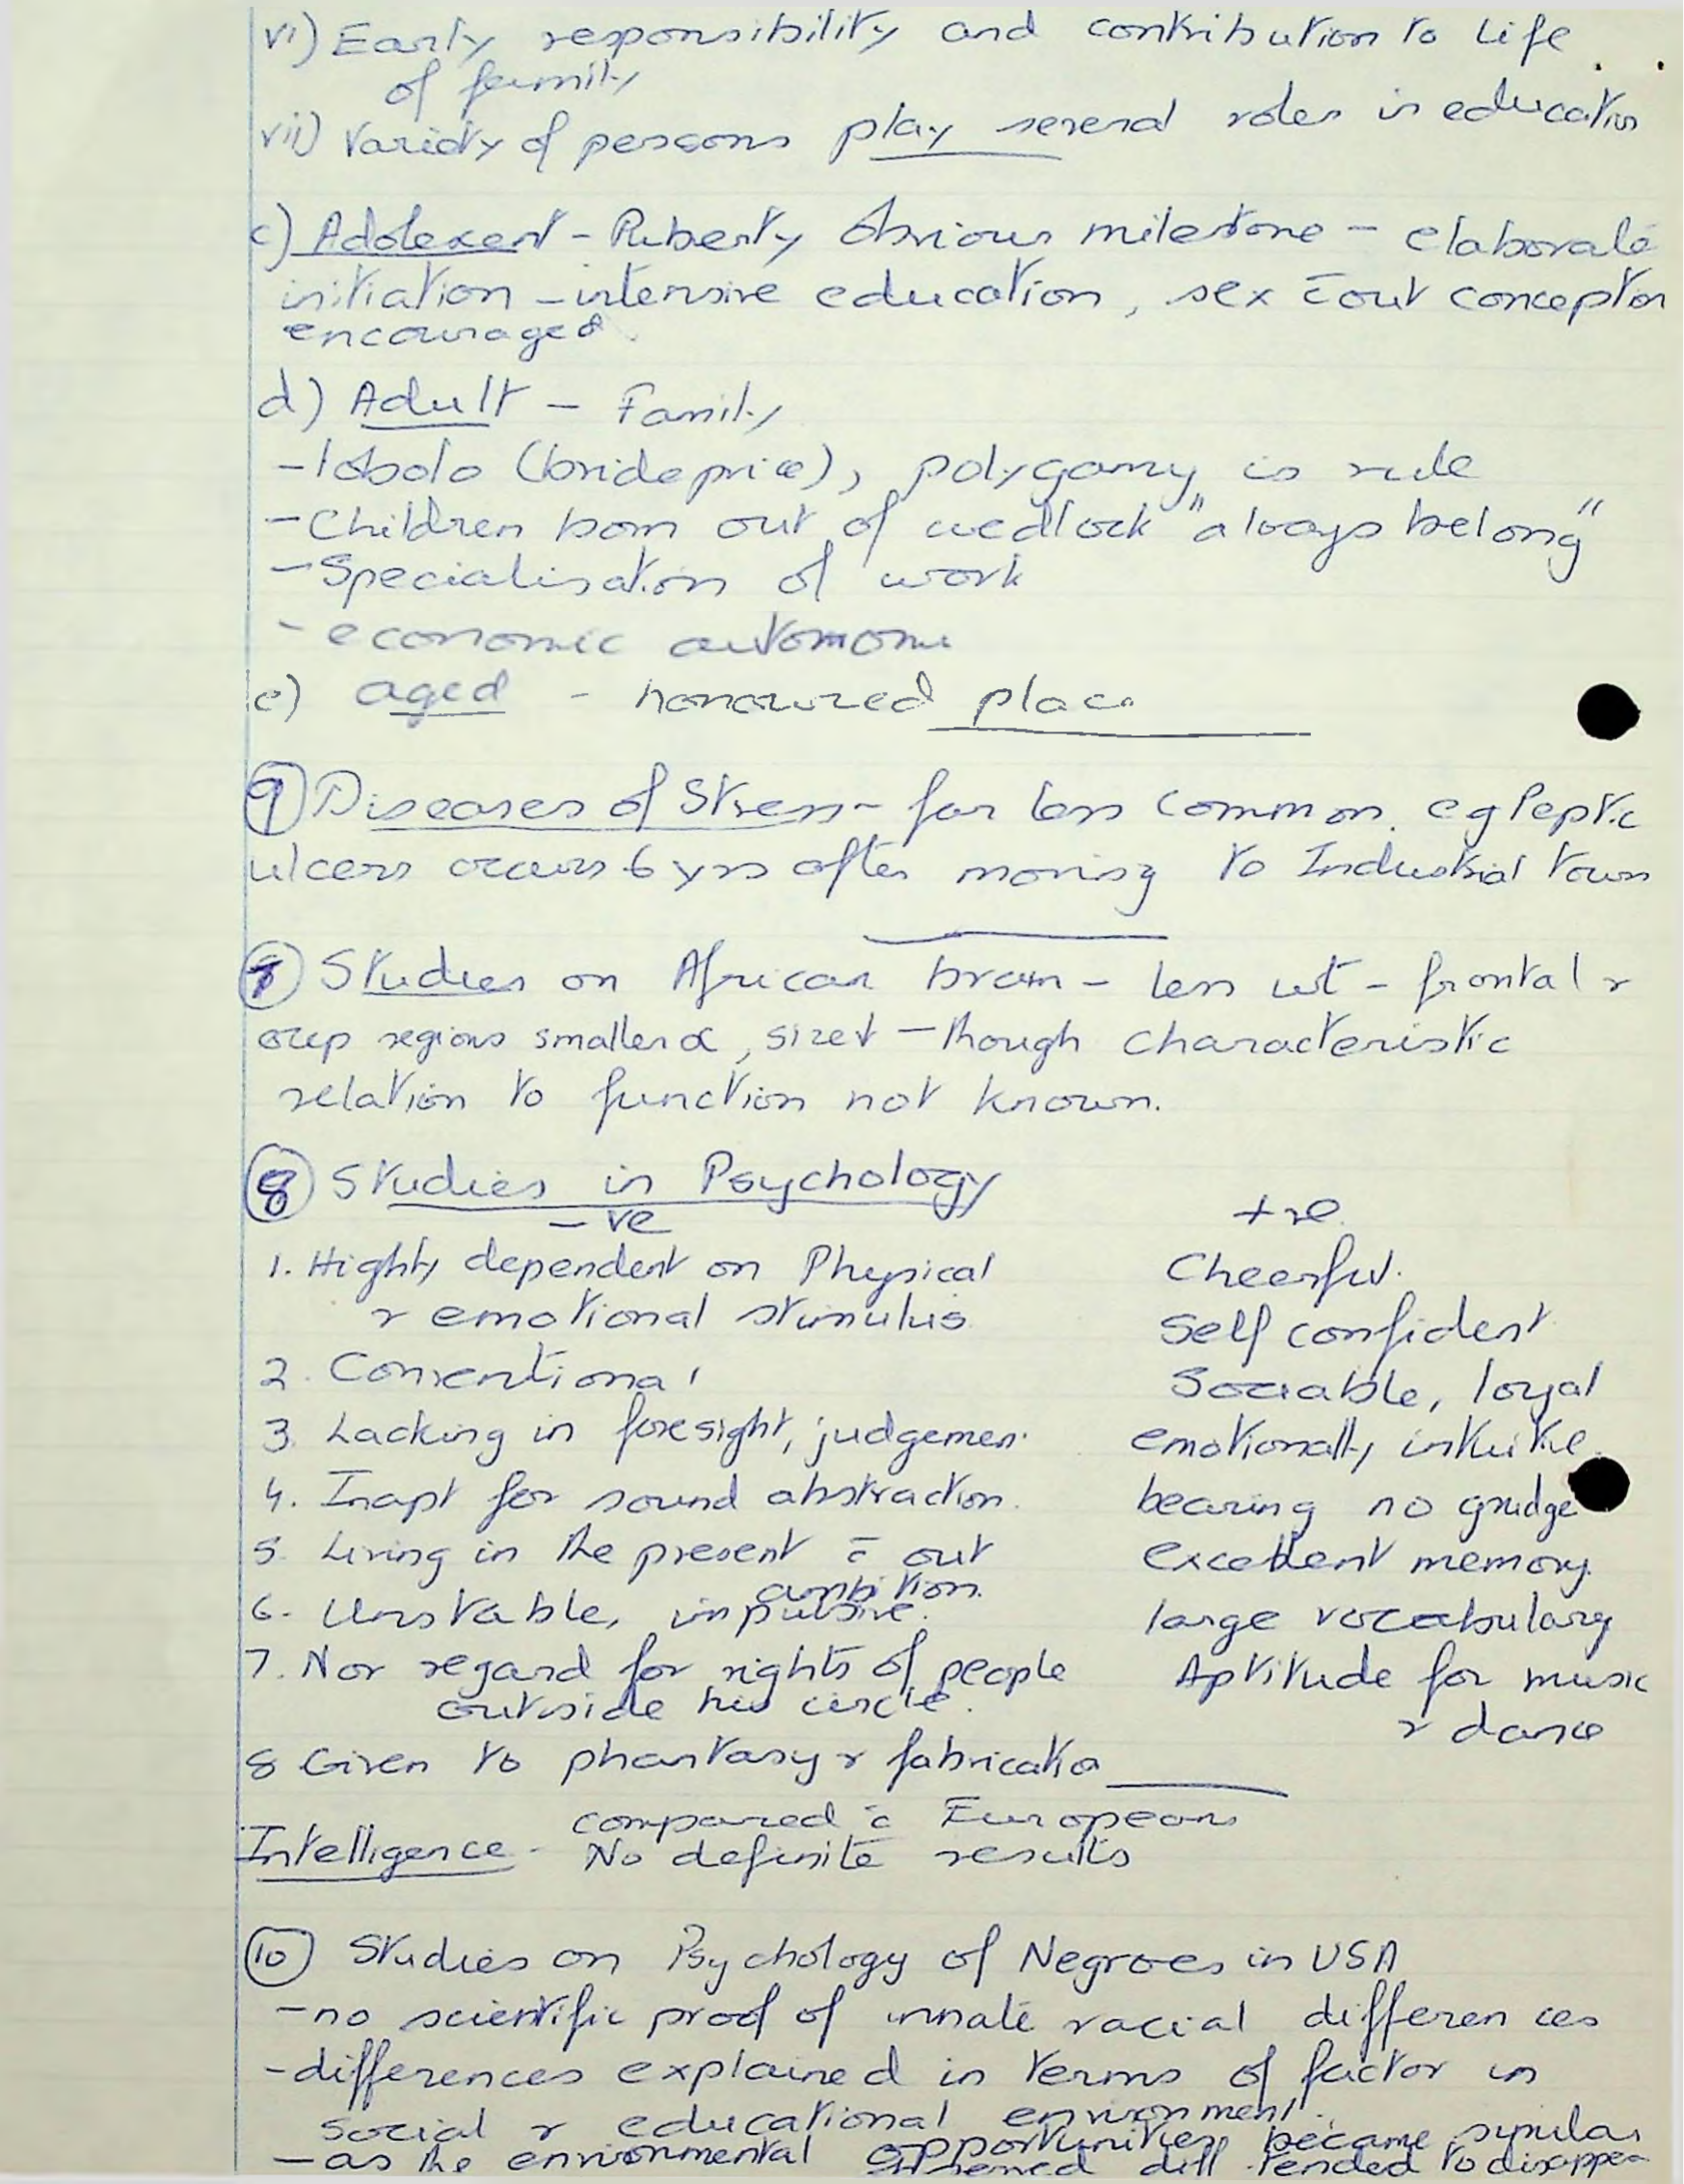 vi) Early responsibility and contribution to Life
of family
vii) Variety of persons play several roles in education
c) Adolexent - Puberty Obvious milestone - elaborate
initiation - intensive education, sex c̄out conception
encouraged.
d) Adult - Family
- lobolo (brideprice), polygamy is rule
- Children born out of wedlock "always belong"
- Specialisation of work
- economic
e) aged - honoured place
9) Diseases of Stress - far less common. eg Peptic
ulcers occurs 6 yrs after moving to Industrial Town
Studies on African brain - less wt - frontal &
regions smaller - though characteristic
relation to function not known.
8) Studies in Psychology
- ve +ve
1. Highly dependent on Physical Cheerful.
& emotional stimulus Self confident
2. Conventional Sociable, loyal
3. Lacking in foresight, judgement emotionally intuitive
4. Inapt for sound abstraction. bearing no grudge
5. Living in the present c̄ out excellent memory.
ambition.
6. Unstable, impulsive. large vocabulary
7. Nor regard for rights of people Aptitude for music
outside his circle. & dance
8 Given to phantasy & fabrication
compared c̄ Europeans
Intelligence - No definite results
10) Studies on Psychology of Negroes in USA
- no scientific proof of innate racial differences
- differences explained in terms of factor in
social & educational environment.
- as the environmental opportunities became similar
diff tended to disappear